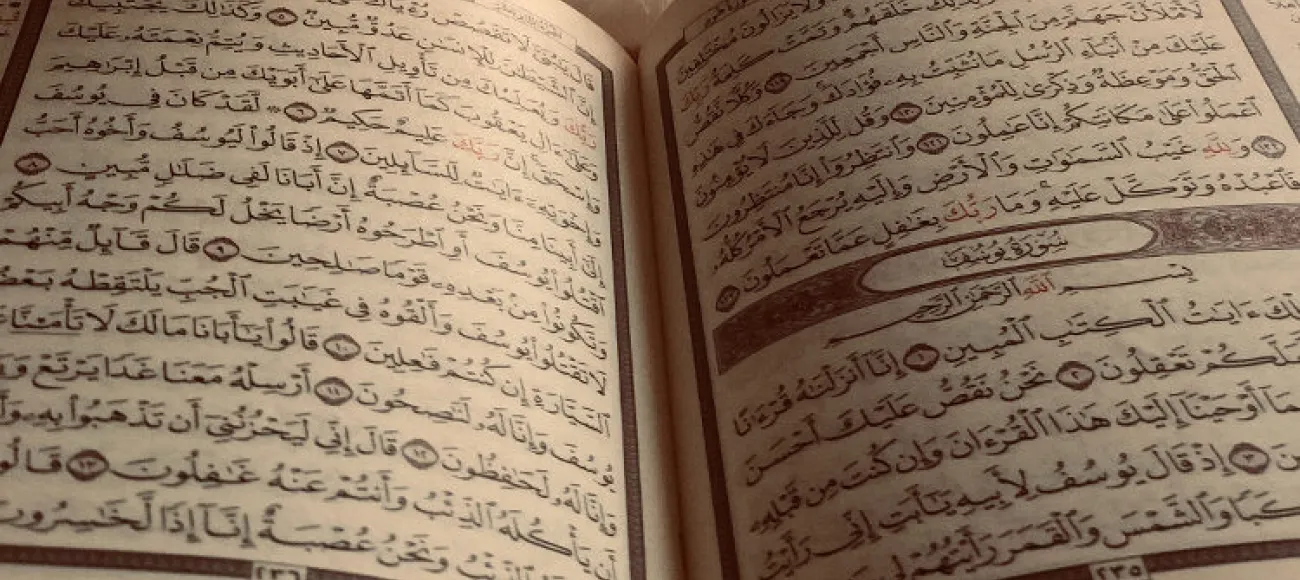 وَلَا يَزَالُونَ مُخْتَلِفِينَ
خَلَقَهُمْ وَتَمَّتْ كَلِمَةُ رَبِّكَ
لَأَمْلَأَنَّ جَهَنَّمَ مِنَ ٱلْجِنَّةِ وَٱلنَّاسِ أَجْمَعِينَ ١١٩ وَكُلًّا نَّقُصُّ
عَلَيْكَ مِنْ أَنۢبَآءِ ٱلرُّسُلِ مَا نُثَبِّتُ بِهِۦ فُؤَادَكَ وَجَآءَكَ فِى هَٰذِهِ
ٱلْحَقُّ وَمَوْعِظَةٌ وَذِكْرَىٰ لِلْمُؤْمِنِينَ ١٢٠ وَقُل لِّلَّذِينَ لَا يُؤْمِنُونَ
ٱعْمَلُوا۟ عَلَىٰ مَكَانَتِكُمْ إِنَّا عَٰمِلُونَ ١٢١ وَٱنتَظِرُوٓا۟ إِنَّا مُنتَظِرُونَ
١٢٢ وَلِلَّهِ غَيْبُ ٱلسَّمَٰوَٰتِ وَٱلْأَرْضِ وَإِلَيْهِ يُرْجَعُ ٱلْأَمْرُ كُلُّهُۥ
فَٱعْبُدْهُ وَتَوَكَّلْ عَلَيْهِ وَمَا رَبُّكَ بِغَٰفِلٍ عَمَّا تَعْمَلُونَ ١٢٣
سُورَةُ يُوسُفَ
بِسْمِ ٱللَّهِ ٱلرَّحْمَٰنِ ٱلرَّحِيمِ
لْكَ ءَايَٰتُ ٱلْكِتَٰبِ ٱلْمُبِينِ ١ إِنَّآ أَنزَلْنَٰهُ قُرْءَٰنًا
عَلَّكُمْ تَعْقِلُونَ ٢ نَحْنُ نَقُصُّ عَلَيْكَ أَحْسَنَ
مَآ أَوْحَيْنَآ إِلَيْكَ هَٰذَا ٱلْقُرْءَانَ وَإِن كُنتَ مِن قَبْلِهِۦ
نَ ٣ إِذْ قَالَ يُوسُفُ لِأَبِيهِ يَٰٓأَبَتِ إِنِّى رَأَيْتُ
كَبًا وَٱلشَّمْسَ وَٱلْقَمَرَ رَأَيْتُهُمْ لِى
٢٣٥
قَالَ يَٰبُنَىَّ لَا تَقْصُصْ رُءْيَاكَ
إِنَّ ٱلشَّيْطَٰنَ لِلْإِنسَٰنِ عَدُوٌّ مُّبِينٌ ٥ وَكَذَٰلِكَ يَجْتَبِيكَ
رَبُّكَ وَيُعَلِّمُكَ مِن تَأْوِيلِ ٱلْأَحَادِيثِ وَيُتِمُّ نِعْمَتَهُۥ عَلَيْكَ
وَعَلَىٰٓ ءَالِ يَعْقُوبَ كَمَآ أَتَمَّهَا عَلَىٰٓ أَبَوَيْكَ مِن قَبْلُ إِبْرَٰهِيمَ
وَإِسْحَٰقَ إِنَّ رَبَّكَ عَلِيمٌ حَكِيمٌ ٦ ۞ لَّقَدْ كَانَ فِى يُوسُفَ
وَإِخْوَتِهِۦٓ ءَايَٰتٌ لِّلسَّآئِلِينَ ٧ إِذْ قَالُوا۟ لَيُوسُفُ وَأَخُوهُ أَحَبُّ
إِلَىٰٓ أَبِينَا مِنَّا وَنَحْنُ عُصْبَةٌ إِنَّ أَبَانَا لَفِى ضَلَٰلٍ مُّبِينٍ ٨
ٱقْتُلُوا۟ يُوسُفَ أَوِ ٱطْرَحُوهُ أَرْضًا يَخْلُ لَكُمْ وَجْهُ أَبِيكُمْ
وَتَكُونُوا۟ مِنۢ بَعْدِهِۦ قَوْمًا صَٰلِحِينَ ٩ قَالَ قَآئِلٌ مِّنْهُمْ
لَا تَقْتُلُوا۟ يُوسُفَ وَأَلْقُوهُ فِى غَيَٰبَتِ ٱلْجُبِّ يَلْتَقِطْهُ بَعْضُ
ٱلسَّيَّارَةِ إِن كُنتُمْ فَٰعِلِينَ ١٠ قَالُوا۟ يَٰٓأَبَانَا مَا لَكَ لَا تَأْمَ۫نَّا
يُوسُفَ وَإِنَّا لَهُۥ لَنَٰصِحُونَ ١١ أَرْسِلْهُ مَعَنَا غَدًا يَرْتَعْ وَ
وَإِنَّا لَهُۥ لَحَٰفِظُونَ ١٢ قَالَ إِنِّى لَيَحْزُنُنِىٓ أَن تَذْهَبُوا۟ بِهِۦ وَأَ
أَن يَأْكُلَهُ ٱلذِّئْبُ وَأَنتُمْ عَنْهُ غَٰفِلُونَ ١٣ قَالُو
ٱلذِّئْبُ وَنَحْنُ عُصْبَةٌ إِنَّآ إِذًا لَّخَٰسِرُونَ
٢٣٦